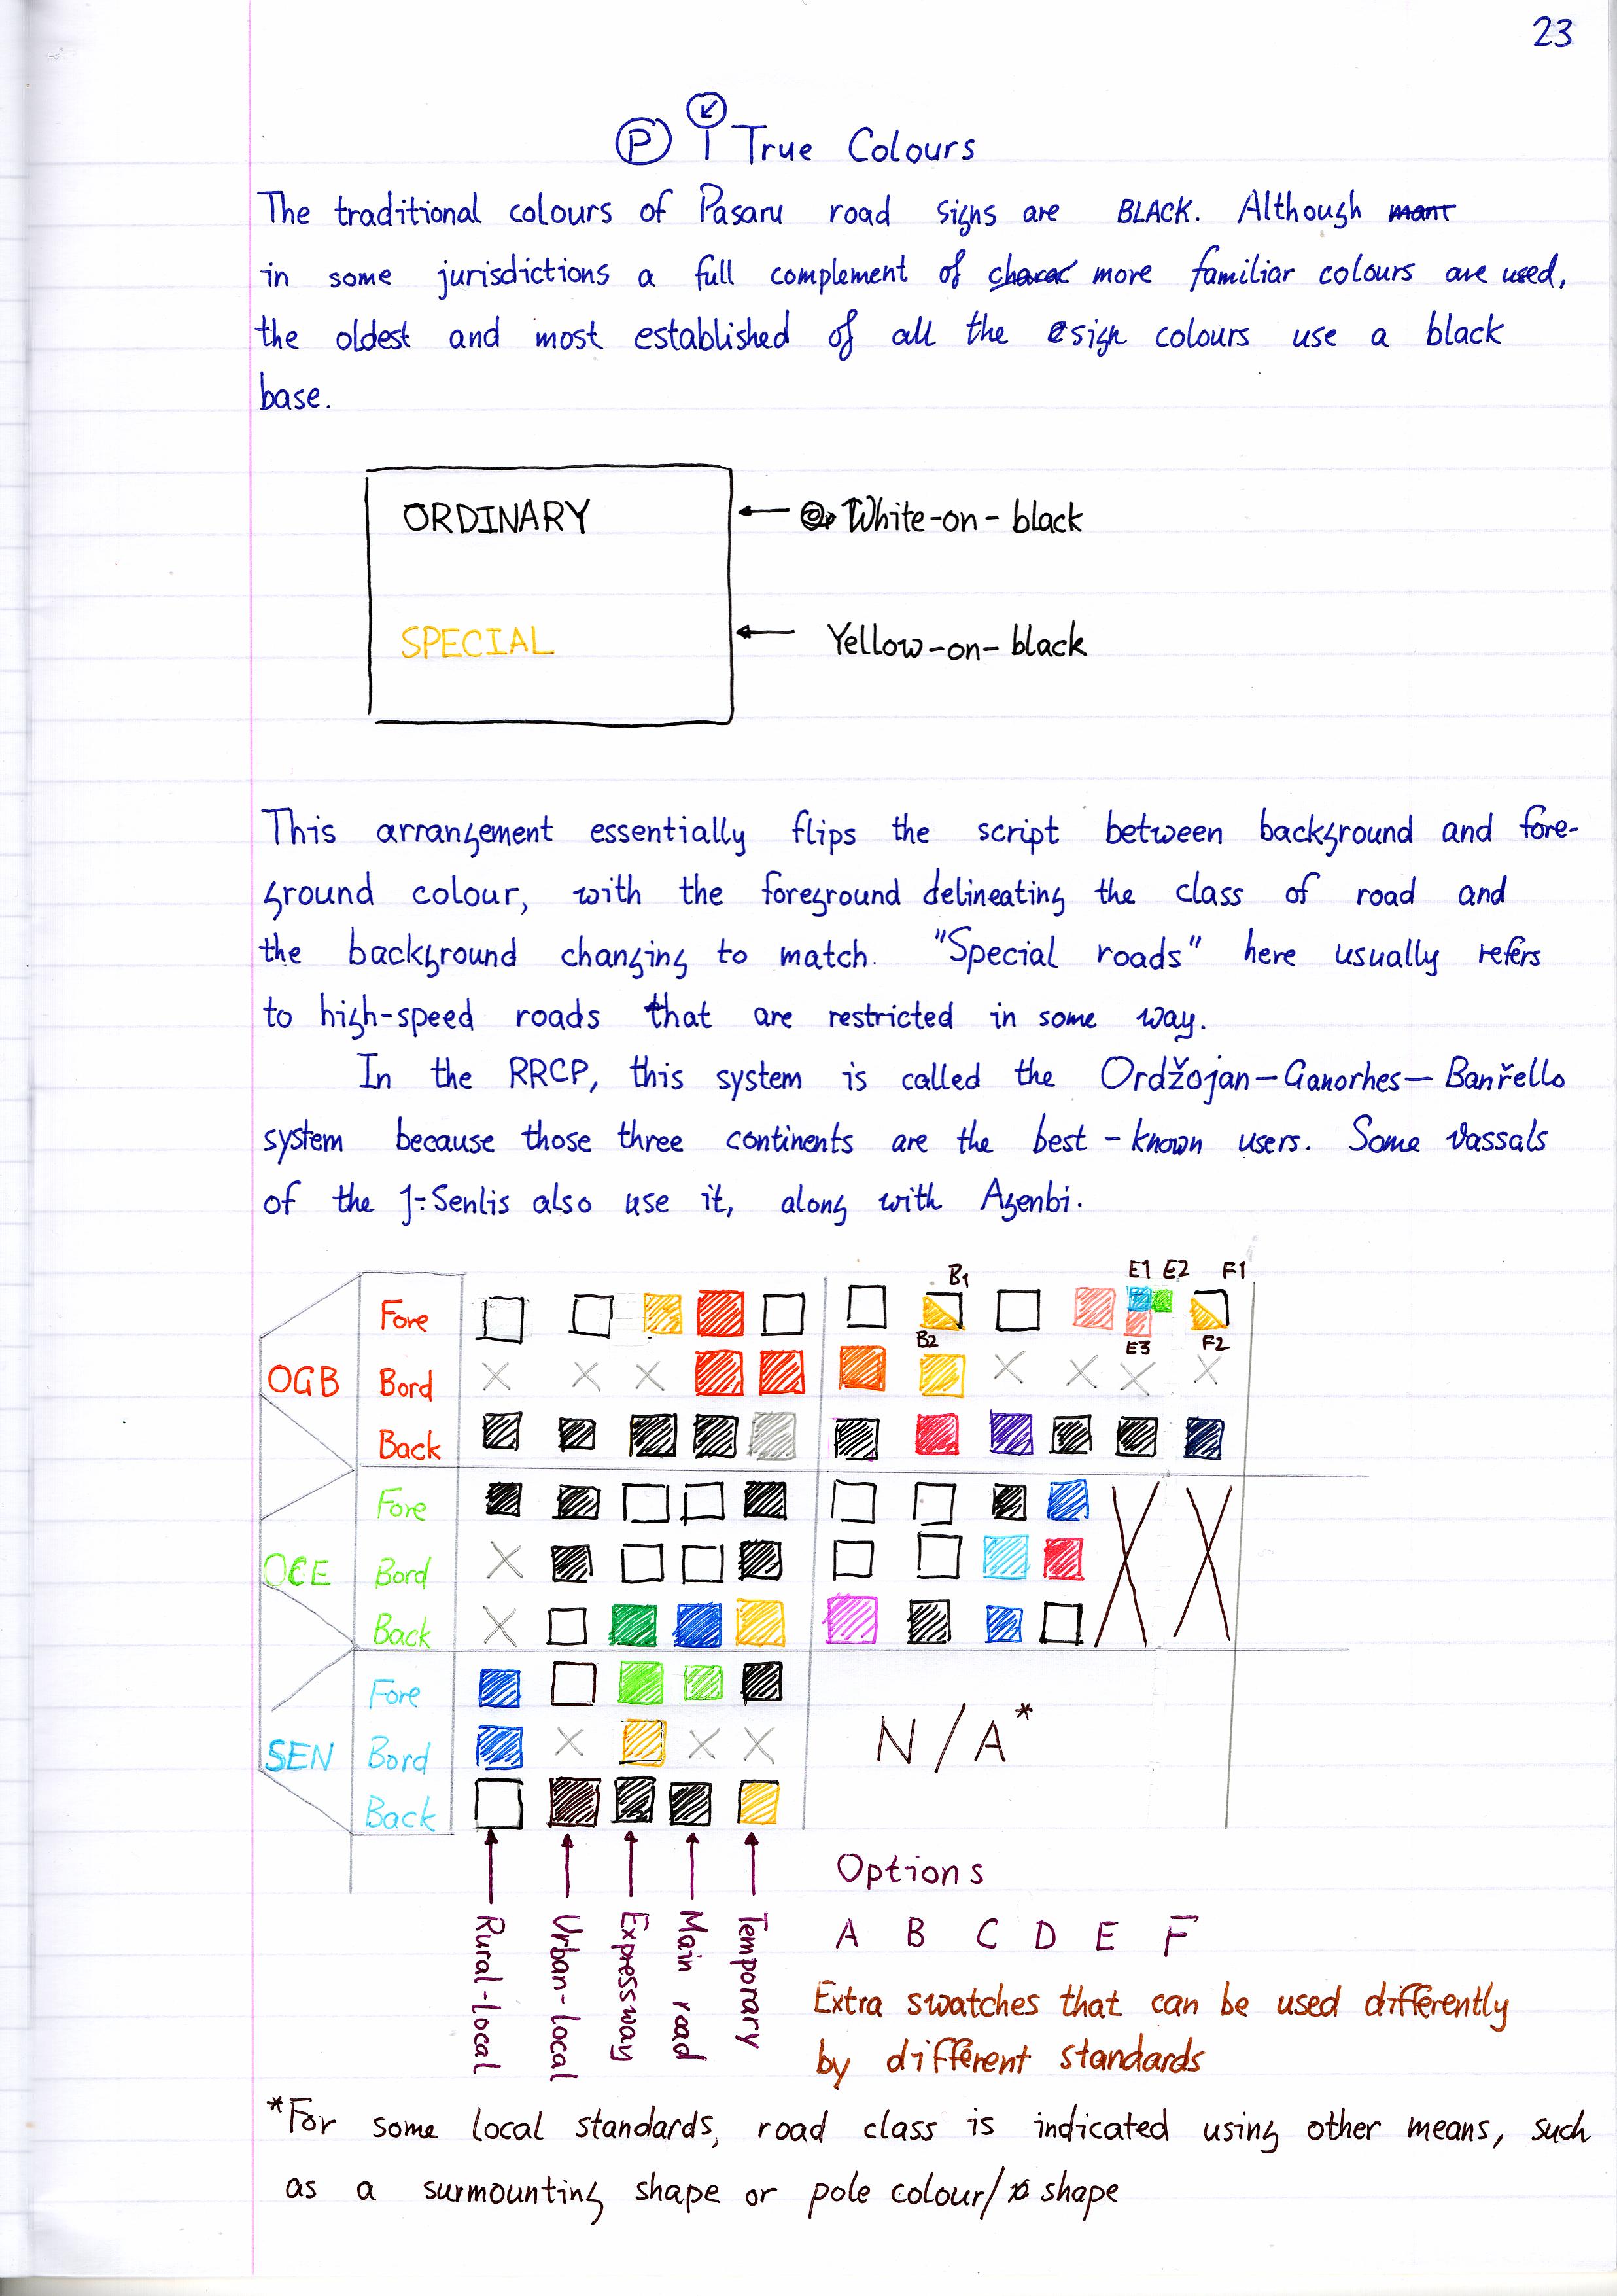 23
P True Colours
The traditional colours of Pasaru road signs are BLACK. Although
in some jurisdictions a full complement of more familiar colours are used,
the oldest and most established of all the sign colours use a black
base.
ORDINARY ← White-on-black
SPECIAL ← Yellow-on-black
This arrangement essentially flips the script between background and fore-
ground colour, with the foreground delineating the class of road and
the background changing to match. "Special roads" here usually refers
to high-speed roads that are restricted in some way.
In the RRCP, this system is called the Ordžojan-Ganorhes-Banřello
system because those three continents are the best-known users. Some vassals
of the J:Senlis also use it, along with Agenbi.
B1 E1 E2 F1
Fore
B2 E3 F2
OGB Bord
Back
Fore
OCE Bord
Back
Fore
N/A*
SEN Bord
Back
Rural-local
Urban-local
Expressway
Main road
Temporary
Options
A B C D E F
Extra swatches that can be used differently
by different standards
*For some local standards, road class is indicated using other means, such
as a surmounting shape or pole colour/shape